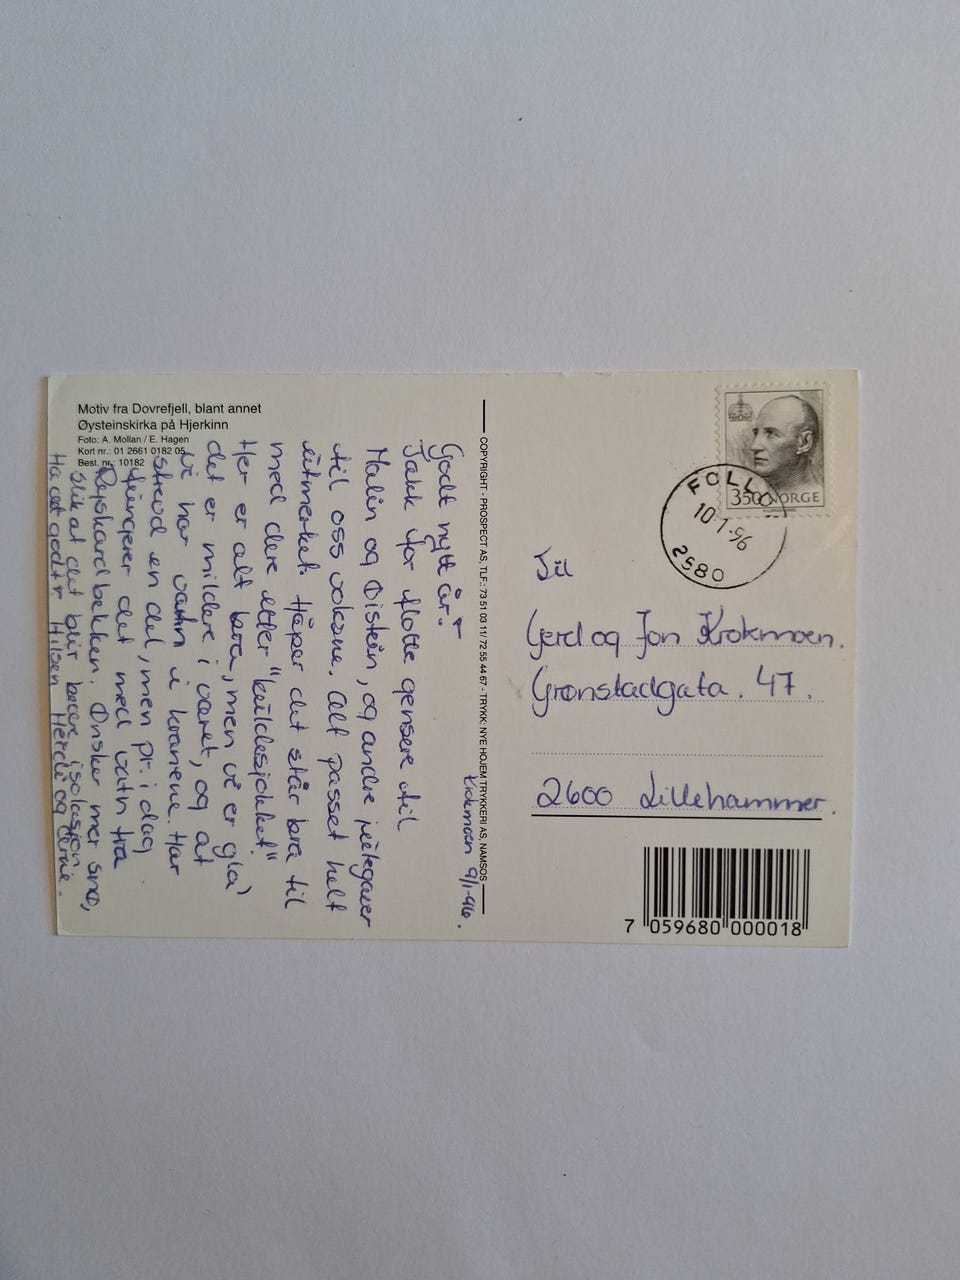 Motiv fra Dovrefjell, blant annet
Øysteinskirka på Hjerkinn
Foto: A. Mollan / E. Hagen
Kort nr.: 01 2661 0182 05
Best. nr.: 10182
Krokmoen 9/1-96.
Godt nytt år!
Takk for flotte gensere til
Malin og Øistein, og andre julegaver
til oss voksne. Alt passet helt
utmerket. Håper det står bra til
med dere etter "kuldesjokket".
Her er alt bra, men vi er gla'
det er mildere i været, og at
vi har vatn i kranene. Har
strevd en del, men pr. i dag
fungerer det med vatn fra
bekken. Ønsker mer snø,
slik at det blir bedre isolasjon.
Ha det godt! Hilsen Herdis og Arne.
COPYRIGHT - PROSPECT AS, TLF.: 73 51 03 11/ 72 55 44 67 - TRYKK: NYE HOJEM TRYKKERI AS, NAMSOS
350 NORGE
FOLL
10-1-96
2580
Til
Gerd og Jon Krokmoen.
Grønstadgata. 47.
2600 Lillehammer.
7 059680 000018